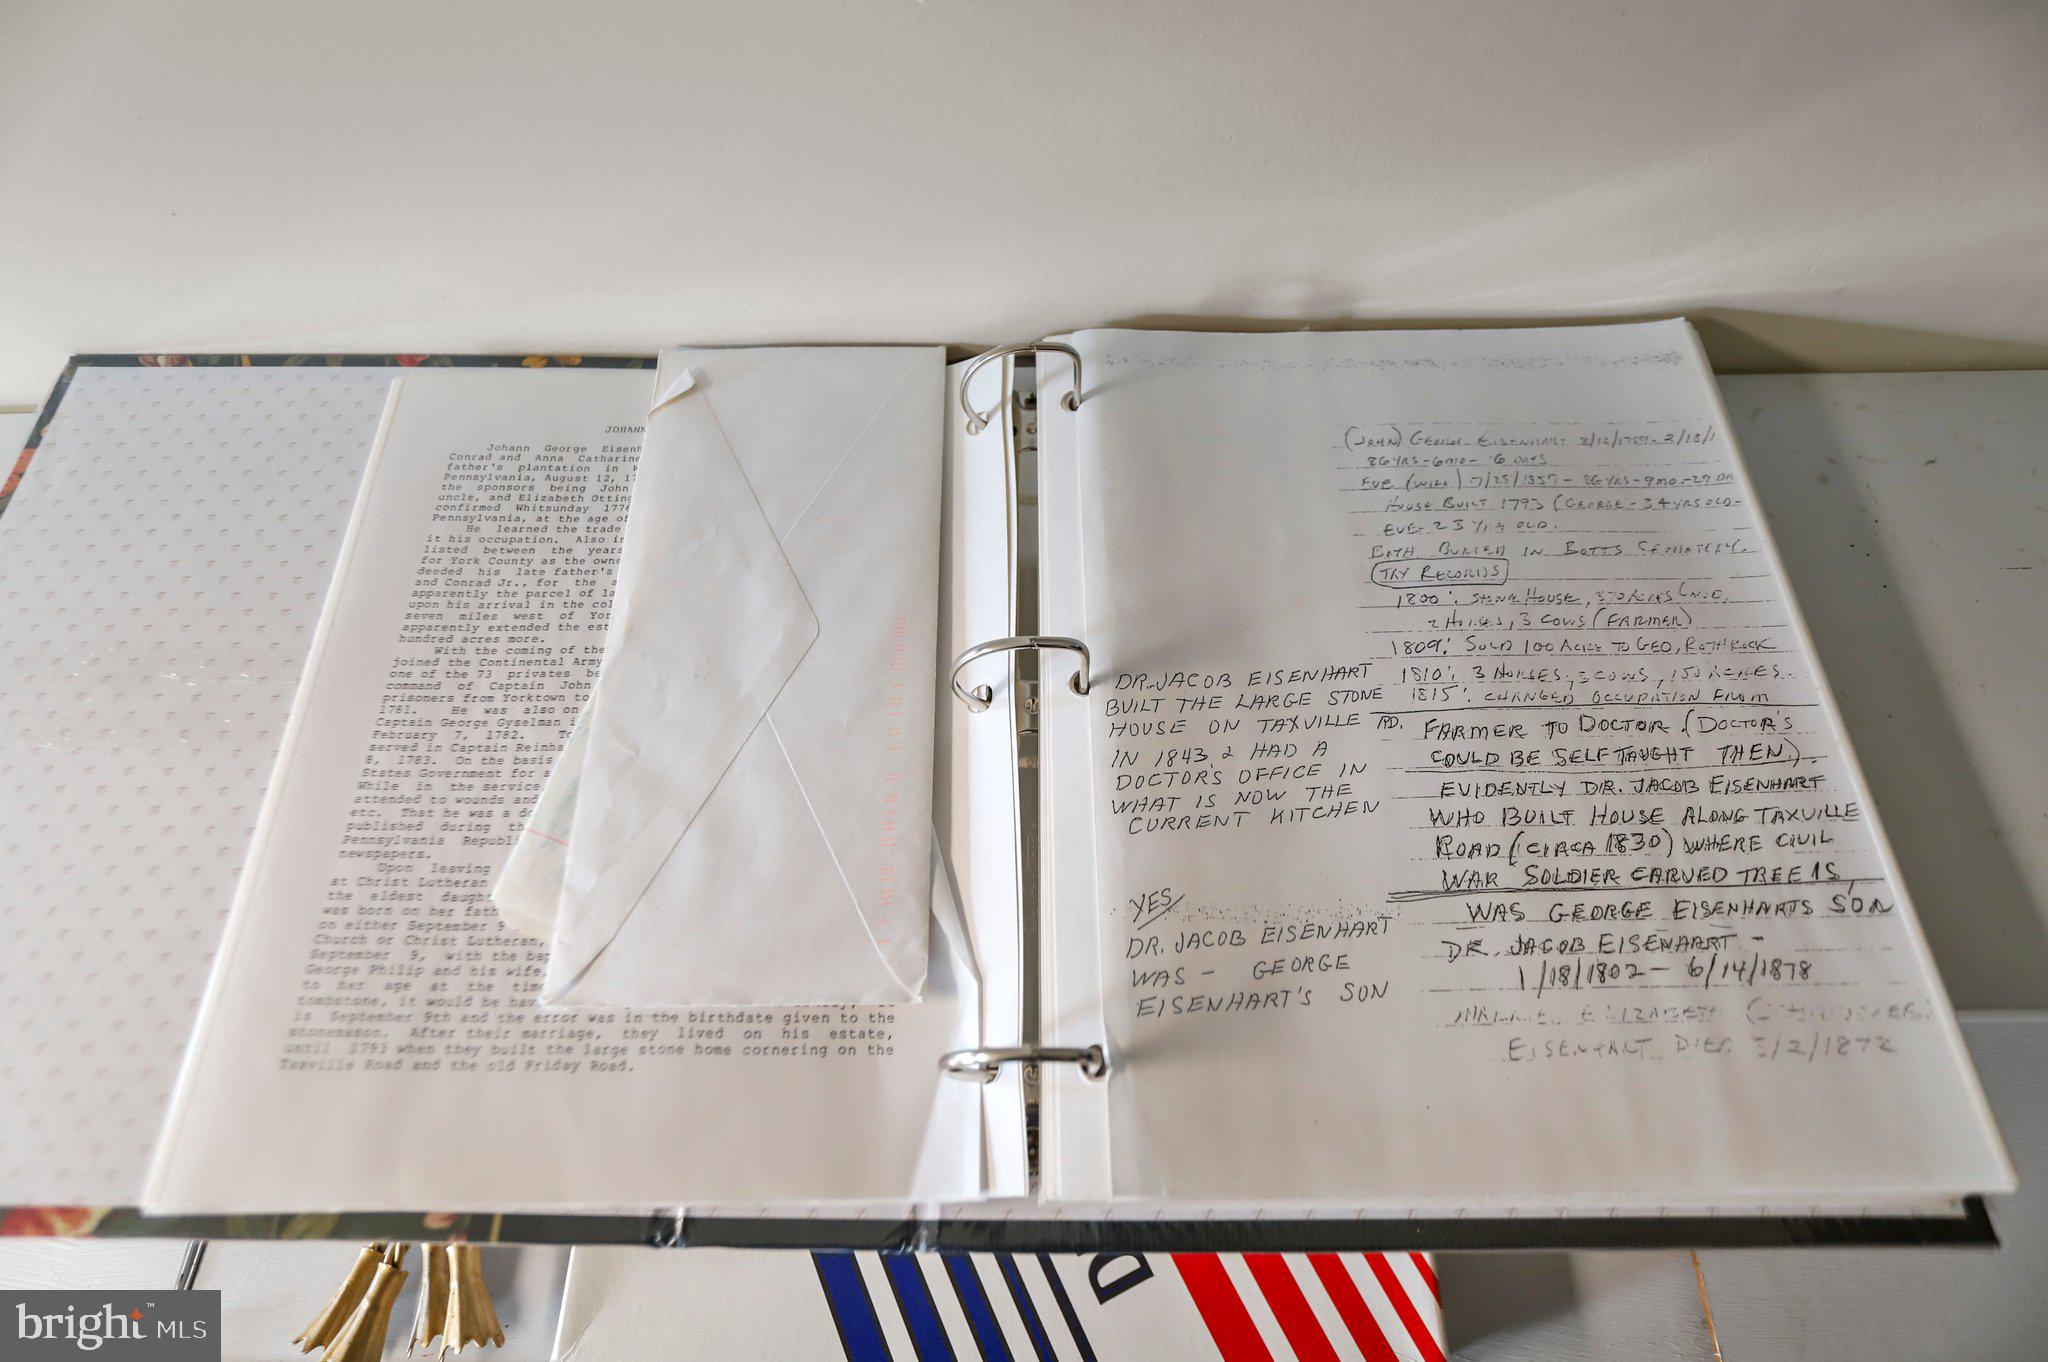 JOHANN
Johann George Eisenh
Conrad and Anna Catharine
father's plantation in W
Pennsylvania, August 12, 17
the sponsors being John
uncle, and Elizabeth Otting
confirmed Whitsunday 1776
Pennsylvania, at the age of
He learned the trade
it his occupation. Also in
listed between the years
for York County as the owne
deeded his late father's
and Conrad Jr., for the a
apparently the parcel of la
upon his arrival in the col
seven miles west of Yor
apparently extended the est
hundred acres more.
With the coming of the
joined the Continental Army
one of the 73 privates be
command of Captain John
prisoners from Yorktown to
1781. He was also on
Captain George Gyselman i
February 7, 1782. To
served in Captain Reinha
8, 1783. On the basis
States Government for a
While in the service,
attended to wounds and
etc. That he was a do
published during th
Pennsylvania Republi
newspapers.
Upon leaving
at Christ Lutheran
the eldest daught
was born on her fath
on either September 9
Church or Christ Lutheran,
September 9, with the bap
George Philip and his wife,
to her age at the tim
tombstone, it would be hav
is September 9th and the error was in the birthdate given to the
stonemason. After their marriage, they lived on his estate,
until 1793 when they built the large stone home cornering on the
Taxville Road and the old Friday Road.
(JOHN) GEORGE EISENHART
86 YRS - 6 MO - 6 DAYS
EVE (WIFE) 7/28/1857 - 86 YRS - 9 MO - 29 DA
HOUSE BUILT 1793 (GEORGE - 34 YRS OLD -
EVE - 23 YRS OLD.
BOTH BURIED IN BOTTS CEMETERY.
TAX RECORDS
1800: STONE HOUSE, LAND,
2 HORSES, 3 COWS (FARMER)
1809: SOLD 100 ACRES TO GEO, ROTHROCK
1810: 3 HORSES, COWS, 150 ACRES.
1815: CHANGED OCCUPATION FROM
FARMER TO DOCTOR (DOCTOR'S
COULD BE SELF TAUGHT THEN).
EVIDENTLY DR. JACOB EISENHART
WHO BUILT HOUSE ALONG TAXVILLE
ROAD (CIRCA 1830) WHERE CIVIL
WAR SOLDIER CARVED TREE IS,
WAS GEORGE EISENHARTS SON
DR. JACOB EISENHART -
1/18/1802 - 6/14/1878
ELIZABETH
EISENHART DIED 3/2/1872
DR. JACOB EISENHART
BUILT THE LARGE STONE
HOUSE ON TAXVILLE RD.
IN 1843 & HAD A
DOCTORS OFFICE IN
WHAT IS NOW THE
CURRENT KITCHEN
YES/
DR. JACOB EISENHART
WAS - GEORGE
EISENHART'S SON
D
bright™ MLS